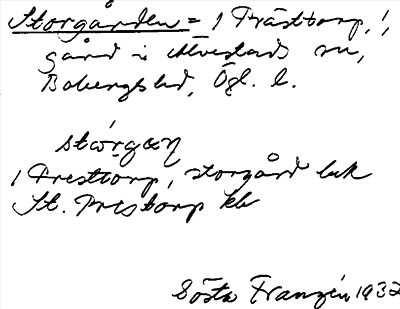 Storgården = 1 Prästtorp, 1,
gård i Älvestads sn,
Bobergs hd, Ögl. l.
stórgaṇ
1 Presttorp, storgård luk
St. Prestorp kb
Gösta Franzén 1932